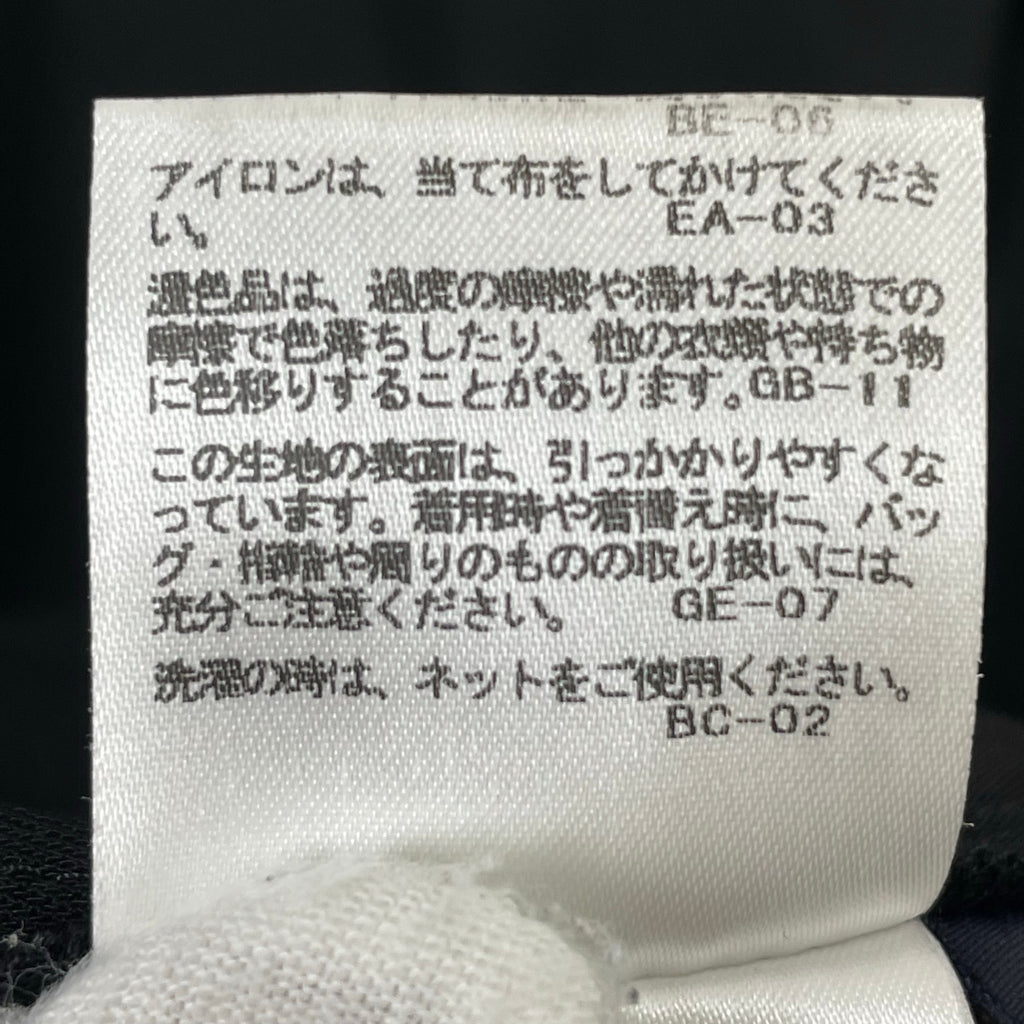 BE-06
アイロンは、当て布をしてかけてくださ
い。 EA-03
濃色品は、過度の摩擦や濡れた状態での
摩擦で色落ちしたり、他の衣類や持ち物
に色移りすることがあります。GB-11
この生地の表面は、引っかかりやすくな
っています。着用時や着替え時に、バッ
グ・や周りのものの取り扱いには、
充分ご注意ください。 GE-07
洗濯の時は、ネットをご使用ください。
BC-02